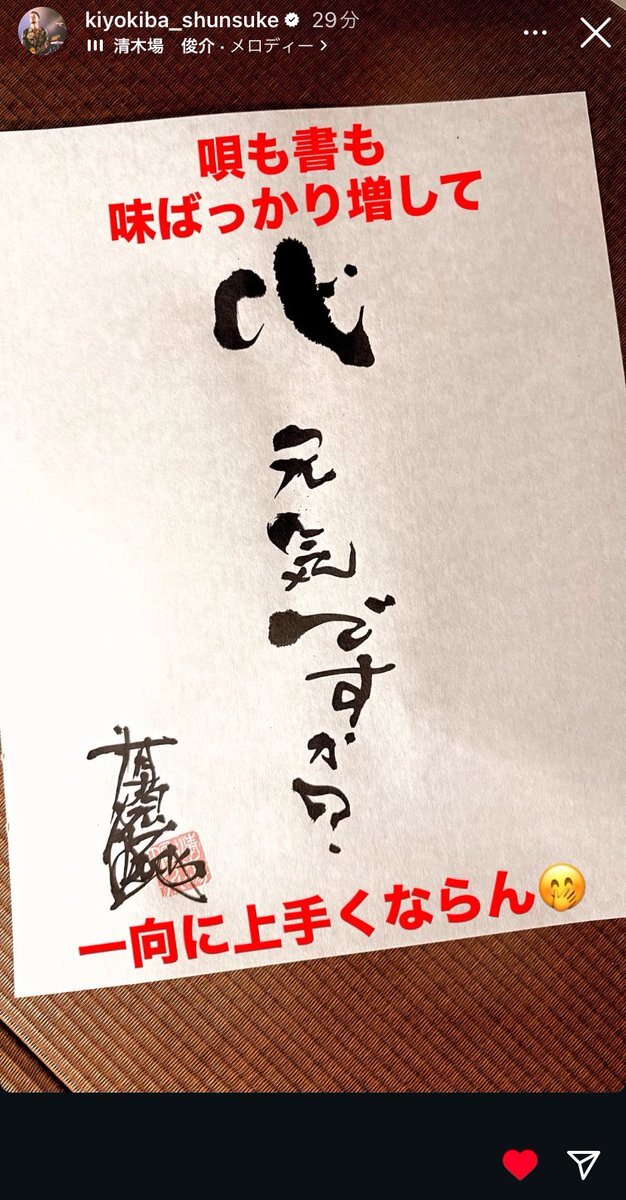 kiyokiba_shunsuke 29分
清木場　俊介・メロディー >
唄も書も
味ばっかり増して
元気ですか?
一向に上手くならん🤭